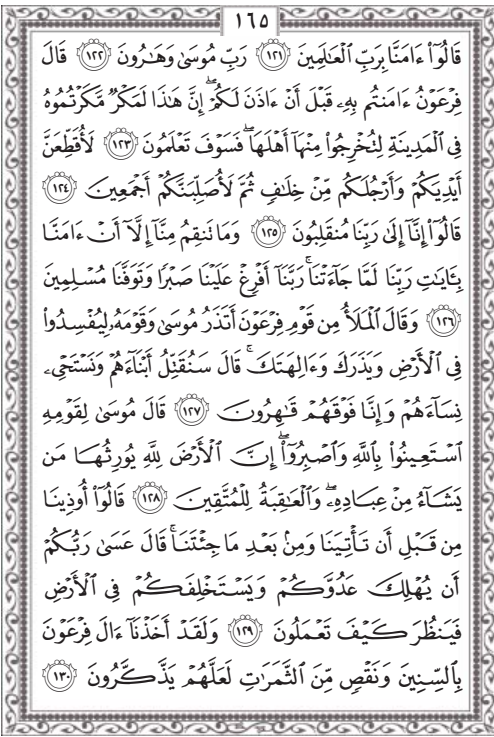 ١٦٥
قَالُوٓا۟ ءَامَنَّا بِرَبِّ ٱلْعَٰلَمِينَ ١٢١ رَبِّ مُوسَىٰ وَهَٰرُونَ ١٢٢ قَالَ
فِرْعَوْنُ ءَامَنتُم بِهِۦ قَبْلَ أَنْ ءَاذَنَ لَكُمْ ۖ إِنَّ هَٰذَا لَمَكْرٌ مَّكَرْتُمُوهُ
فِى ٱلْمَدِينَةِ لِتُخْرِجُوا۟ مِنْهَآ أَهْلَهَا ۖ فَسَوْفَ تَعْلَمُونَ ١٢٣ لَأُقَطِّعَنَّ
أَيْدِيَكُمْ وَأَرْجُلَكُم مِّنْ خِلَٰفٍ ثُمَّ لَأُصَلِّبَنَّكُمْ أَجْمَعِينَ ١٢٤
قَالُوٓا۟ إِنَّآ إِلَىٰ رَبِّنَا مُنقَلِبُونَ ١٢٥ وَمَا تَنقِمُ مِنَّآ إِلَّآ أَنْ ءَامَنَّا
بِـَٔايَٰتِ رَبِّنَا لَمَّا جَآءَتْنَا ۚ رَبَّنَآ أَفْرِغْ عَلَيْنَا صَبْرًا وَتَوَفَّنَا مُسْلِمِينَ
١٢٦ وَقَالَ ٱلْمَلَأُ مِن قَوْمِ فِرْعَوْنَ أَتَذَرُ مُوسَىٰ وَقَوْمَهُۥ لِيُفْسِدُوا۟
فِى ٱلْأَرْضِ وَيَذَرَكَ وَءَالِهَتَكَ ۚ قَالَ سَنُقَتِّلُ أَبْنَآءَهُمْ وَنَسْتَحْىِۦ
نِسَآءَهُمْ وَإِنَّا فَوْقَهُمْ قَٰهِرُونَ ١٢٧ قَالَ مُوسَىٰ لِقَوْمِهِ
ٱسْتَعِينُوا۟ بِٱللَّهِ وَٱصْبِرُوٓا۟ ۖ إِنَّ ٱلْأَرْضَ لِلَّهِ يُورِثُهَا مَن
يَشَآءُ مِنْ عِبَادِهِۦ ۖ وَٱلْعَٰقِبَةُ لِلْمُتَّقِينَ ١٢٨ قَالُوٓا۟ أُوذِينَا
مِن قَبْلِ أَن تَأْتِيَنَا وَمِنۢ بَعْدِ مَا جِئْتَنَا ۚ قَالَ عَسَىٰ رَبُّكُمْ
أَن يُهْلِكَ عَدُوَّكُمْ وَيَسْتَخْلِفَكُمْ فِى ٱلْأَرْضِ
فَيَنظُرَ كَيْفَ تَعْمَلُونَ ١٢٩ وَلَقَدْ أَخَذْنَآ ءَالَ فِرْعَوْنَ
بِٱلسِّنِينَ وَنَقْصٍ مِّنَ ٱلثَّمَرَٰتِ لَعَلَّهُمْ يَذَّكَّرُونَ ١٣٠